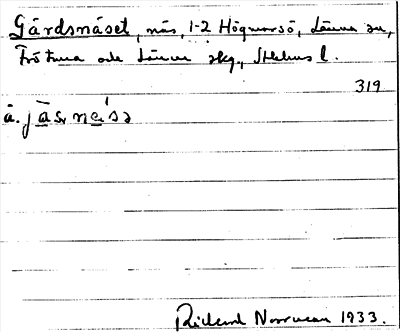 Gårdsnäset, näs, 1-2 Högmarsö, Länna sn,
Frötuna och Länna skg., Sthlms l.
319
å. jås, nẹ́sə
Rickard Norrman 1933.